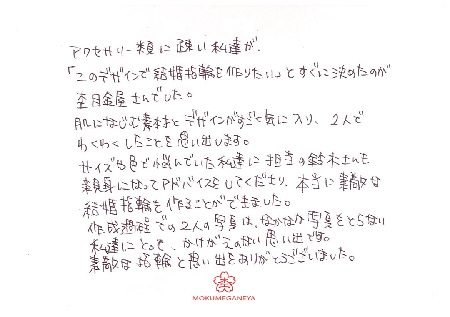 アクセサリー類に疎い私達が、
「このデザインで結婚指輪を作りたい」とすぐに決めたのが
杢目金屋さんでした。
肌になじむ素材とデザインがすごく気に入り、2人で
わくわくしたことを思い出します。
サイズや色で悩んでいた私達に担当の鈴木さんも
親身になってアドバイスをしてくださり、本当に素敵な
結婚指輪を作ることができました。
作成過程での2人の写真は、なかなか写真をとらない
私達にとって、かけがえのない思い出です。
素敵な指輪と思い出をありがとうございました。
MOKUMEGANEYA